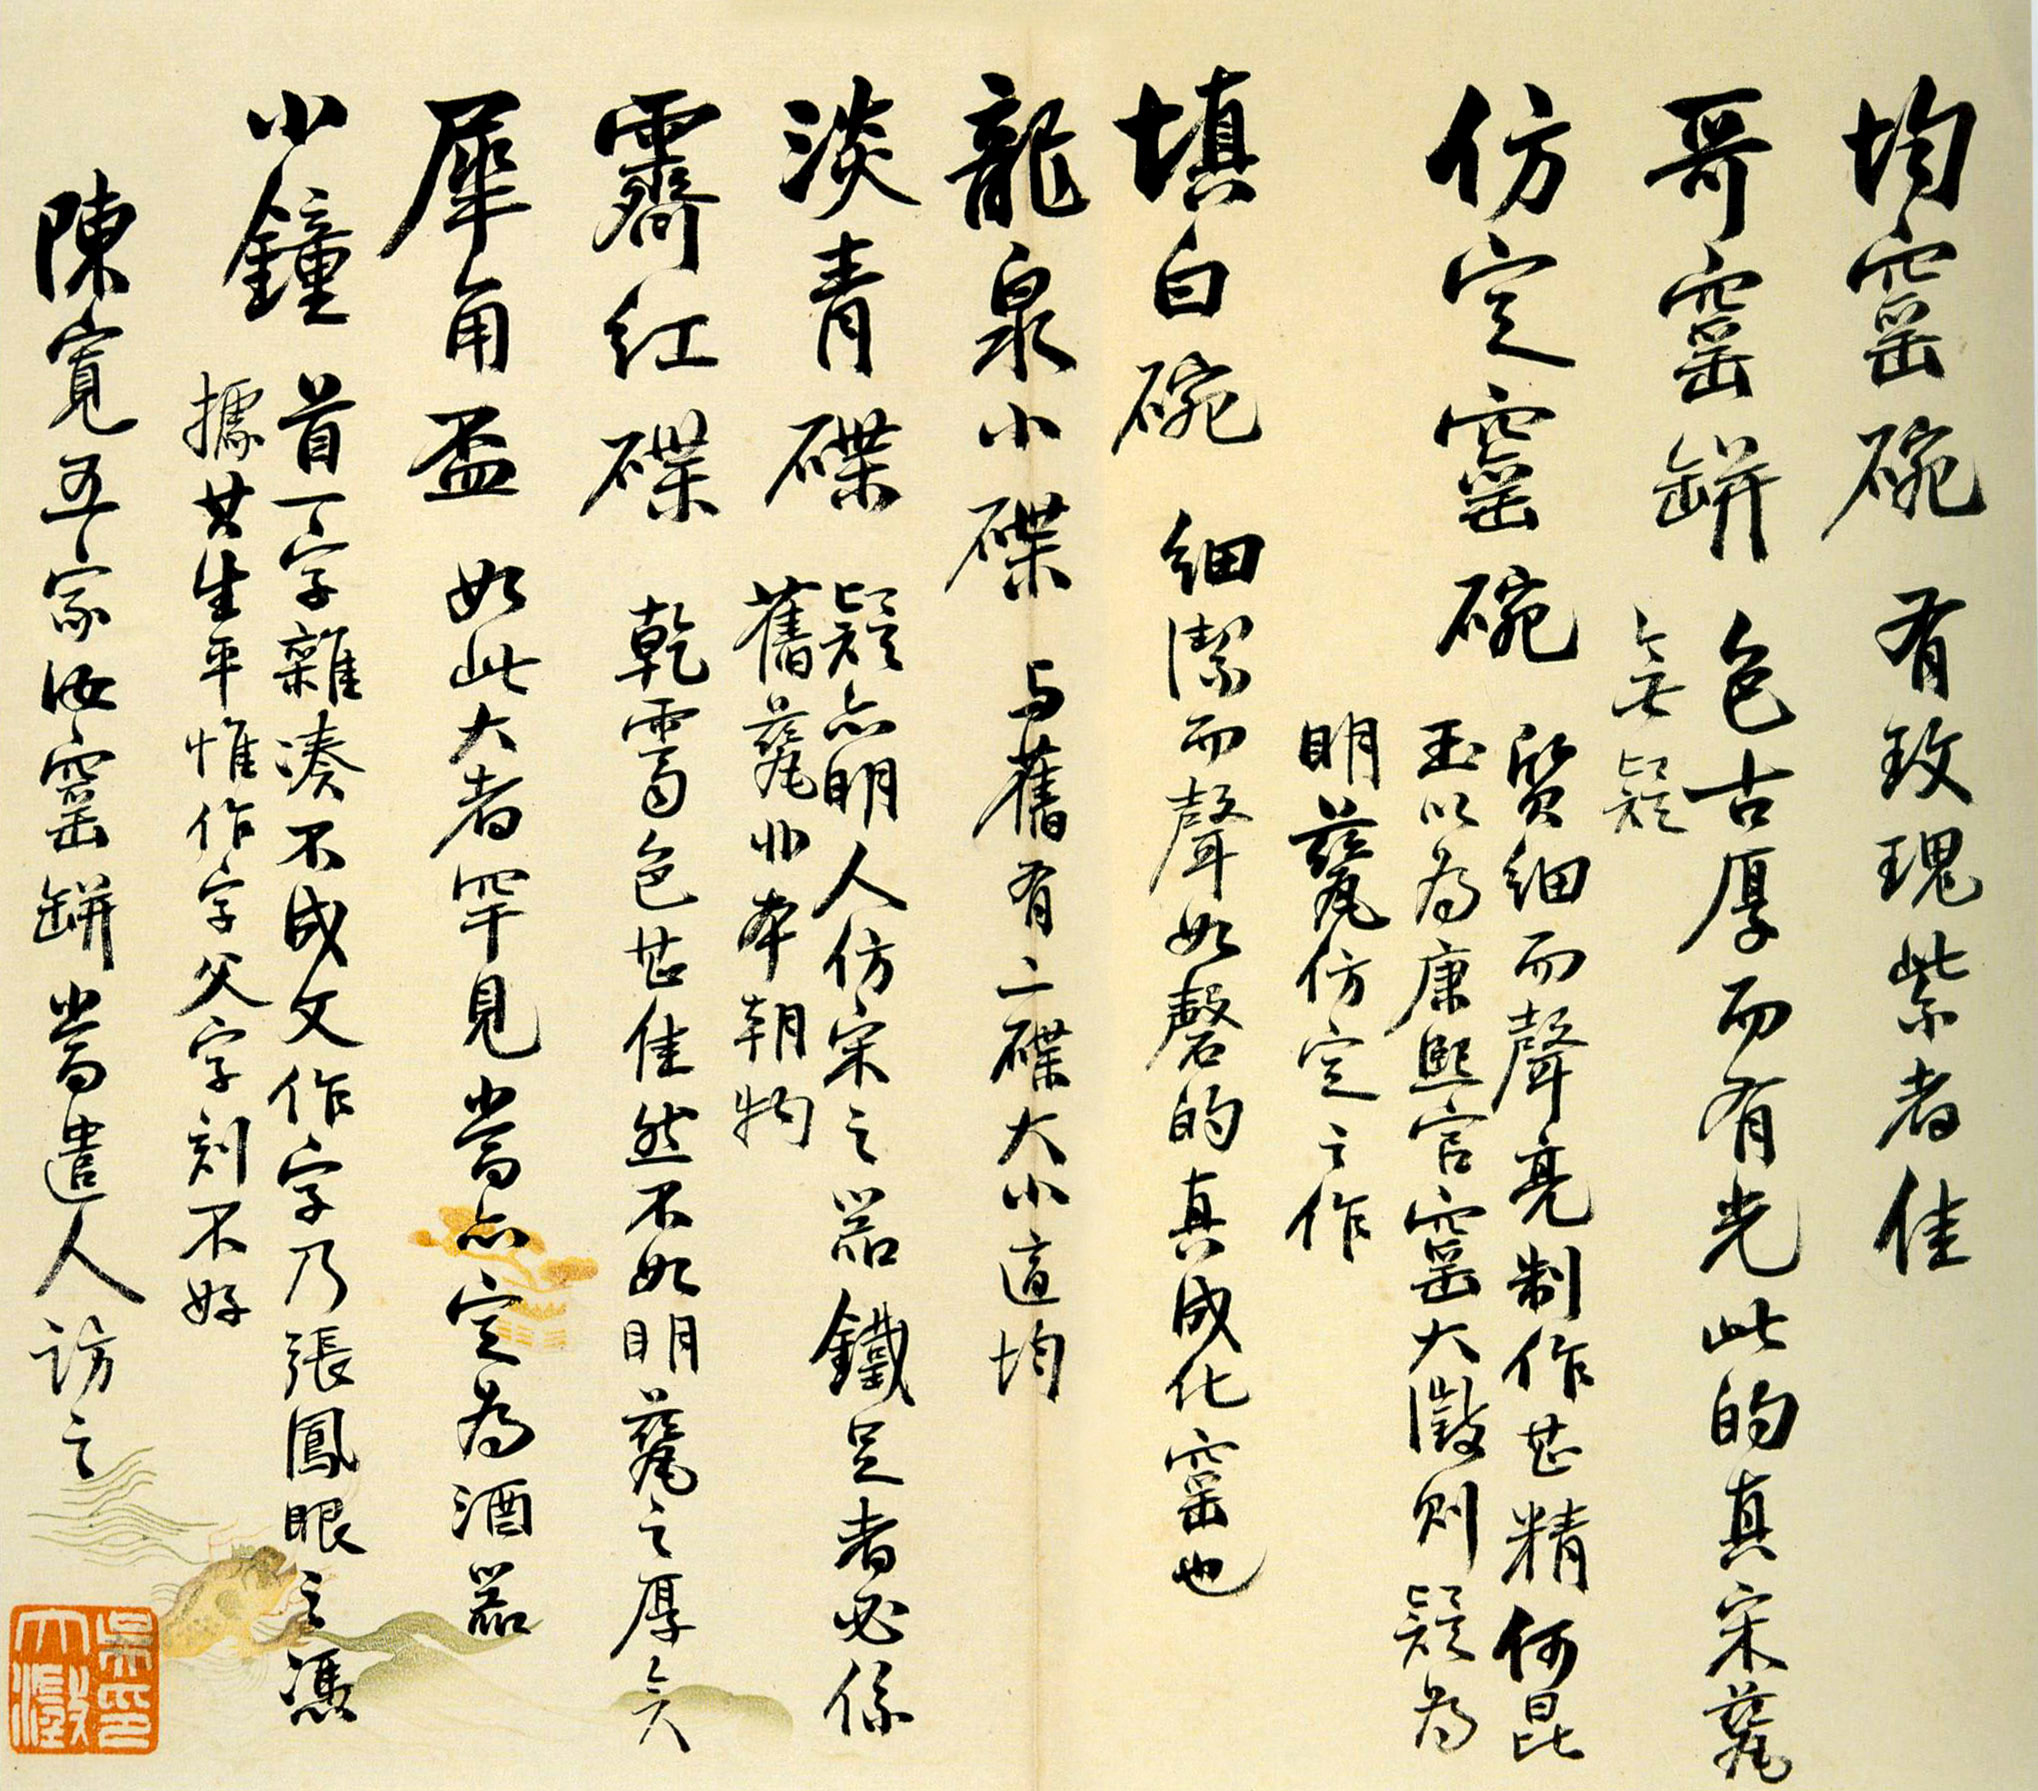 均窑碗 有玫瑰紫者佳
哥窑缾 色古厚而有光此的真宋甆
無疑
仿定窑碗 質細而聲亮制作甚精何昆
玉以為康熙官窑大澂则疑为
明甆仿定之作
填白碗 細潔而聲如磬的真成化窑也
龍泉小碟 与舊有二碟大小適均
淡青碟 疑亦明人仿宋之器鐵足者必係
舊甆非本朝物
霽红碟 乾霽色甚佳然不如明甆之厚矣
犀角盃 如此大者罕見当亦定為酒器
小鐘 首一字雜湊不成文作字乃張鳳眼之憑
據其生平惟作字父字刻不好
陳寬五家汝窑缾当遣人訪之
吳印大澂